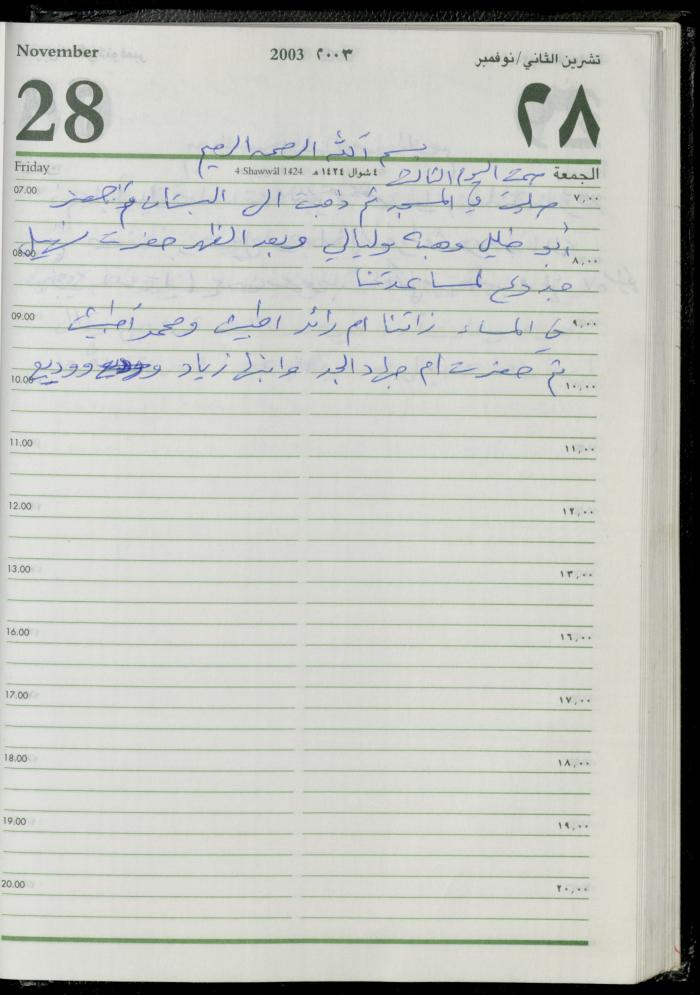 November 2003 ٢٠٠٣ تشرين الثاني/نوفمبر
28 ٢٨
بسم الله الرحمن الرحيم
Friday 4 Shawwāl 1424 ٤ شوال ١٤٢٤ هـ الجمعة
صمت اليوم الثالث
07.00 ٧,٠٠
صليت في المسجد ثم ذهبت الى البستان
أبو خليل وهبه وليالي وبعد الظهر حضرت سهيل
08.00 ٨,٠٠
جدوع لمساعدتنا
09.00 ٩,٠٠
في المساء زارتنا ام رائد اطبيش ومحمد اطبيش
ثم حضرت أم جهاد الجد وابنها زياد ووديع
10.00 ١٠,٠٠
11.00 ١١,٠٠
12.00 ١٢,٠٠
13.00 ١٣,٠٠
16.00 ١٦,٠٠
17.00 ١٧,٠٠
18.00 ١٨,٠٠
19.00 ١٩,٠٠
20.00 ٢٠,٠٠